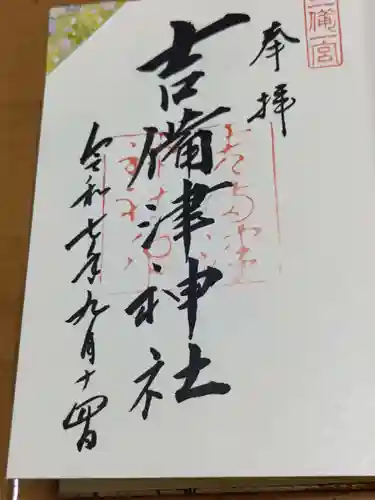 奉拝
吉備津神社
令和七年九月十四日
備一宮